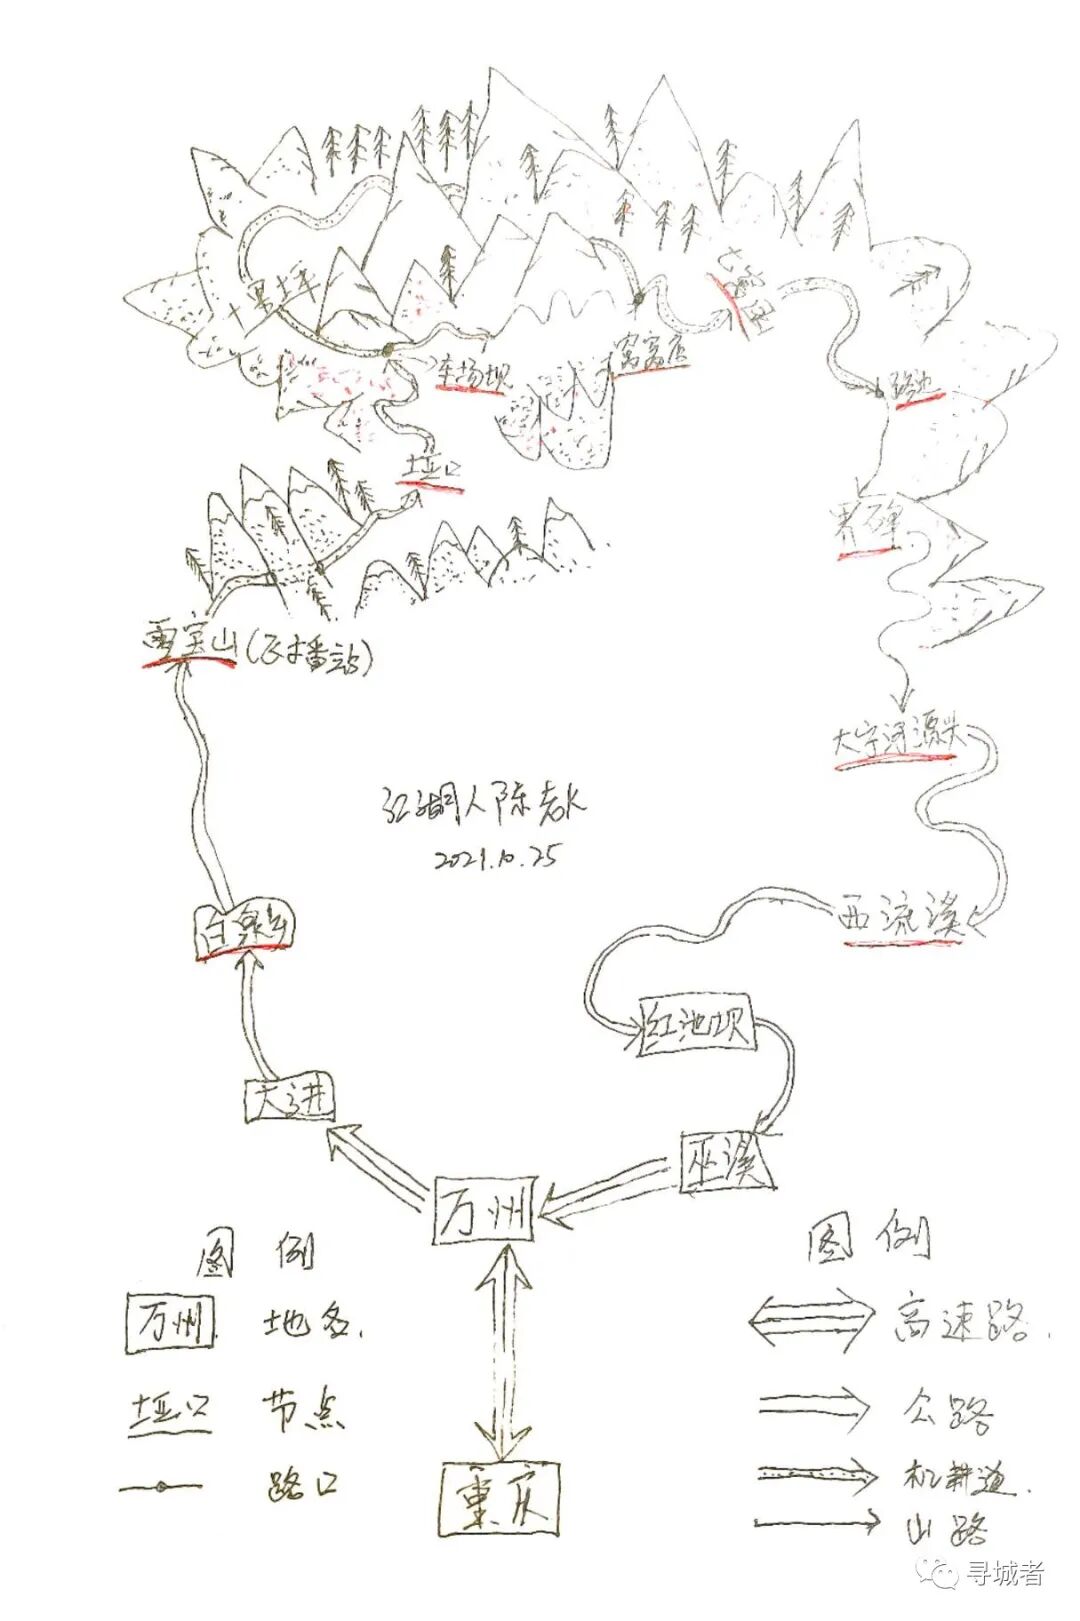 十里坪
七窝凼
车场坝
窝窝店
路池
垭口
界碑
雪宝山(瓦扎番站)
大宁河源头
江湖人陈老K
2021.10.25
白泉乡
西流溪
红池坝
大进
巫溪
万州
图例
万州 地名.
垭口 节点
路口
重庆
图例
高速路.
公路
机耕道.
山路
寻城者